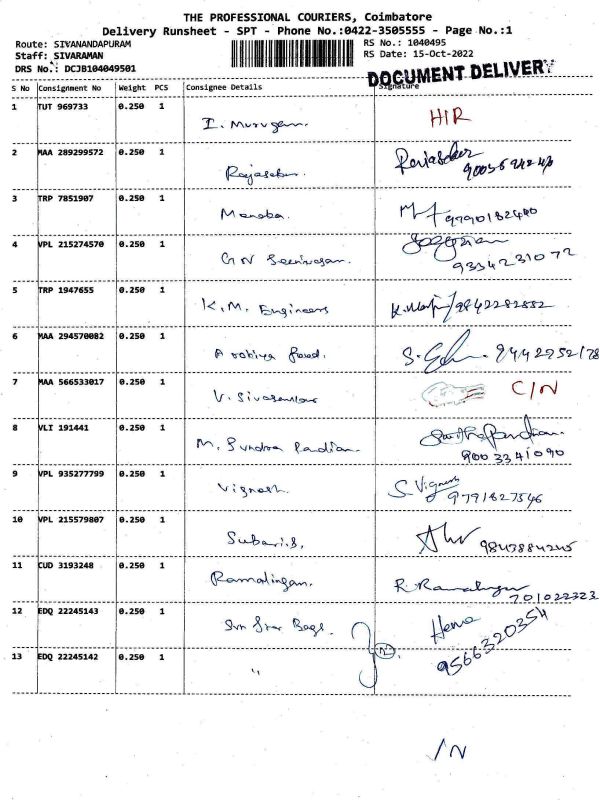 THE PROFESSIONAL COURIERS, Coimbatore
Delivery Runsheet - SPT - Phone No.:0422-3505555 - Page No.:1
Route: SIVANANDAPURAM RS No.: 1040495
Staff: SIVARAMAN RS Date: 15-Oct-2022
DRS No.: DCJB104049501
DOCUMENT DELIVERY
S No Consignment No Weight PCS Consignee Details Signature
1 TUT 969733 0.250 1 I. Murugan
2 MAA 289299572 0.250 1 Rajasekar
3 TRP 7851907 0.250 1 9790182440
4 VPL 215274570 0.250 1 GN Seenivasan. 9334231072
5 TRP 1947655 0.250 1 K.M. Engineers 9842282882
6 MAA 294570082 0.250 1 9442252178
7 MAA 566533017 0.250 1 C/N
8 VLI 191441 0.250 1 M. Sundra Pandian. 9003341090
9 VPL 935277799 0.250 1 Vignesh. S. Vignesh 9791827546
10 VPL 215579807 0.250 1 9843884245
11 CUD 3193248 0.250 1 Ramalingam. 701022323
12 EDQ 22245143 0.250 1 Sun Star Bags. Hema 9566320354
13 EDQ 22245142 0.250 1 "
/N